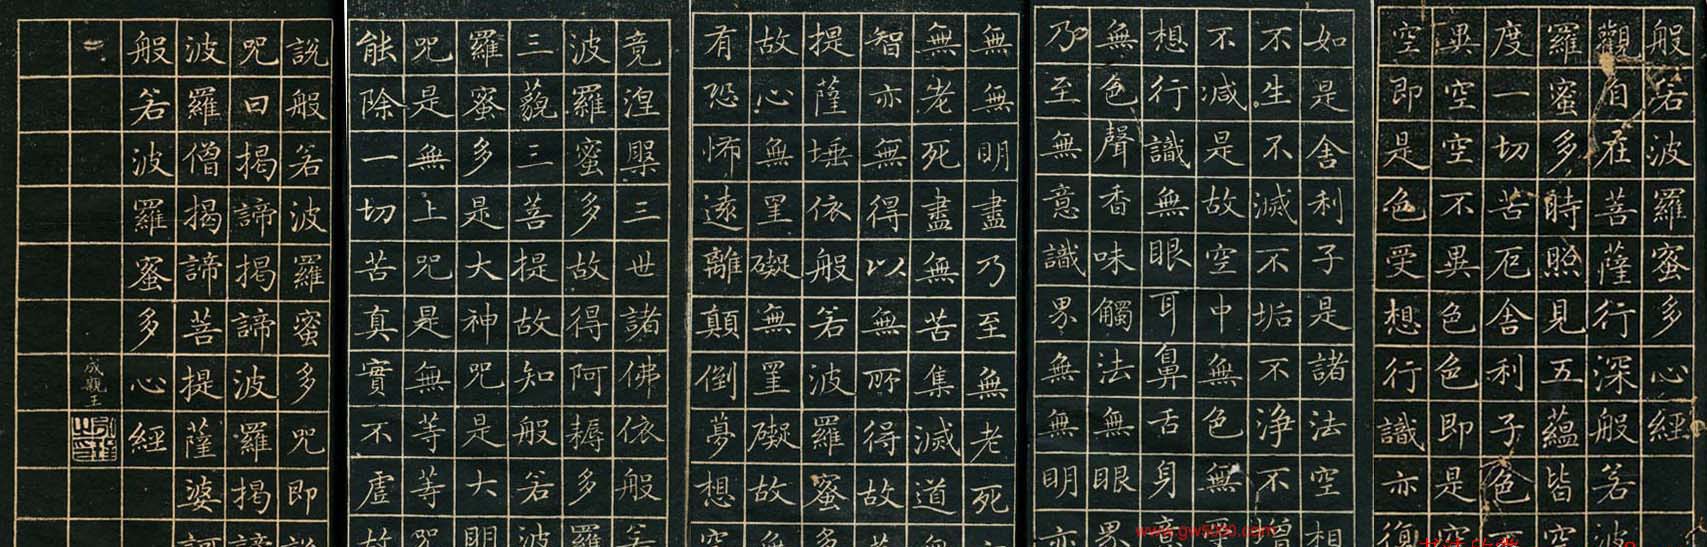 般若波羅蜜多心經
觀自在菩薩行深般若波
羅蜜多時照見五蘊皆空
度一切苦厄舍利子色不
異空空不異色色即是空
空即是色受想行識亦復
如是舍利子是諸法空相
不生不滅不垢不淨不增
不減是故空中無色無受
想行識無眼耳鼻舌身意
無色聲香味觸法無眼界
乃至無意識界無無明亦
無無明盡乃至無老死
無老死盡無苦集滅道無
智亦無得以無所得故菩
提薩埵依般若波羅蜜多
故心無罣礙無罣礙故無
有恐怖遠離顛倒夢想究
竟涅槃三世諸佛依般若
波羅蜜多故得阿耨多羅
三藐三菩提故知般若波
羅蜜多是大神咒是大明
咒是無上咒是無等等咒
能除一切苦真實不虛故
說般若波羅蜜多咒即說
咒曰揭諦揭諦波羅揭諦
波羅僧揭諦菩提薩婆訶
般若波羅蜜多心經
成親王